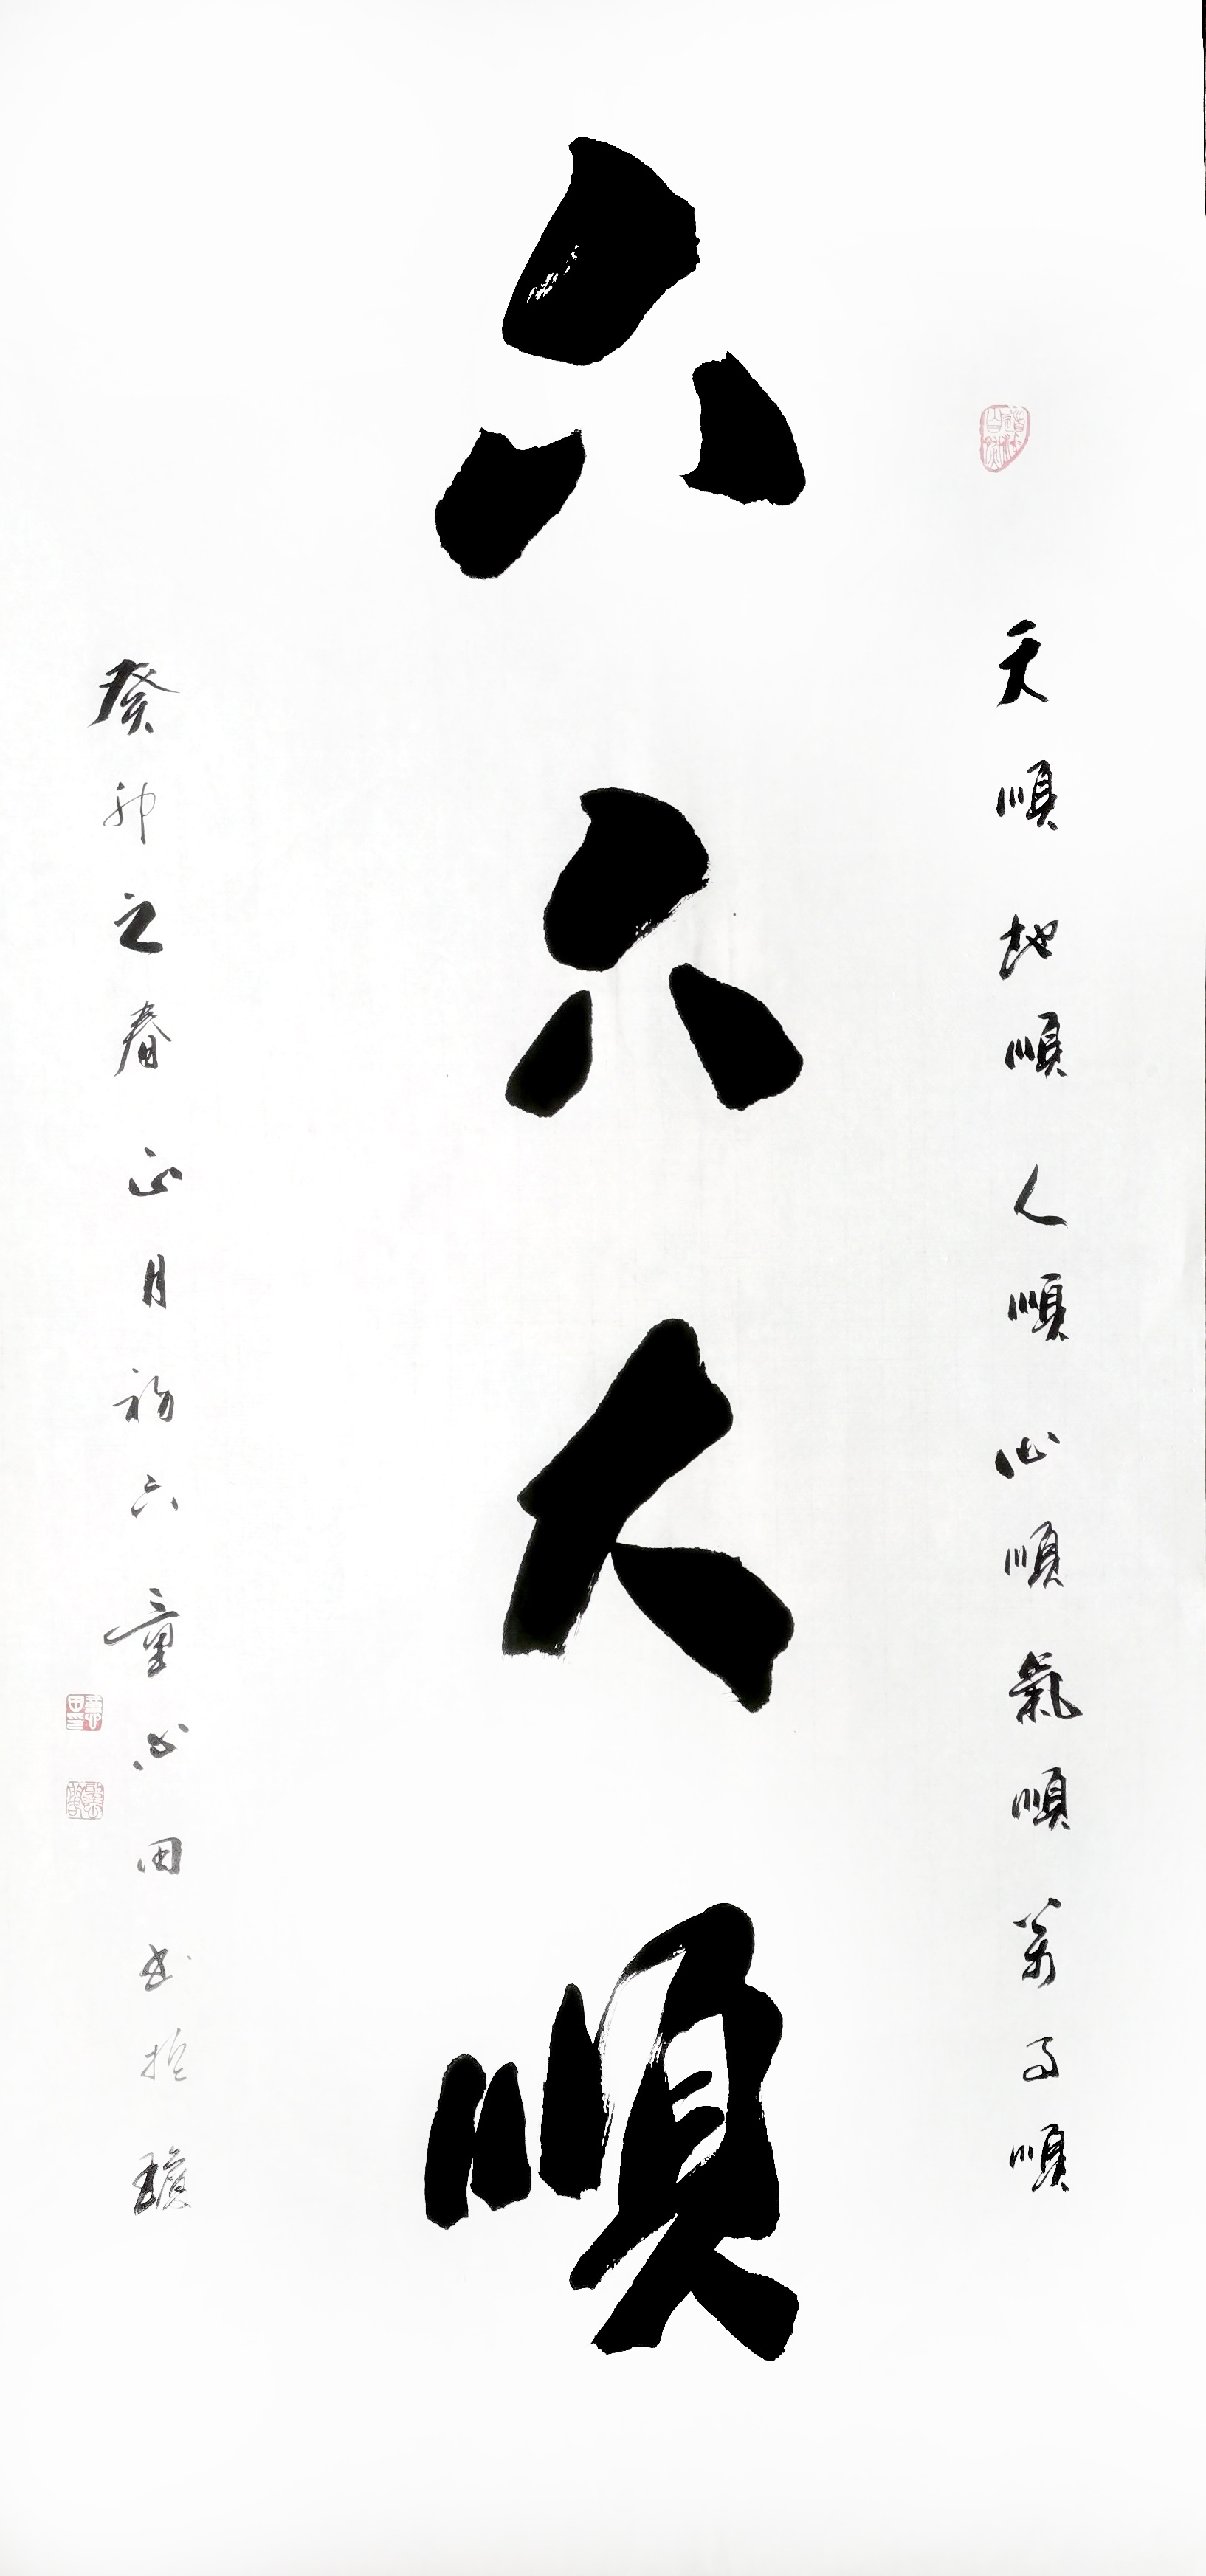 天順地順人順心順氣順萬事順
六六大順
癸卯之春正月初六童心田書於